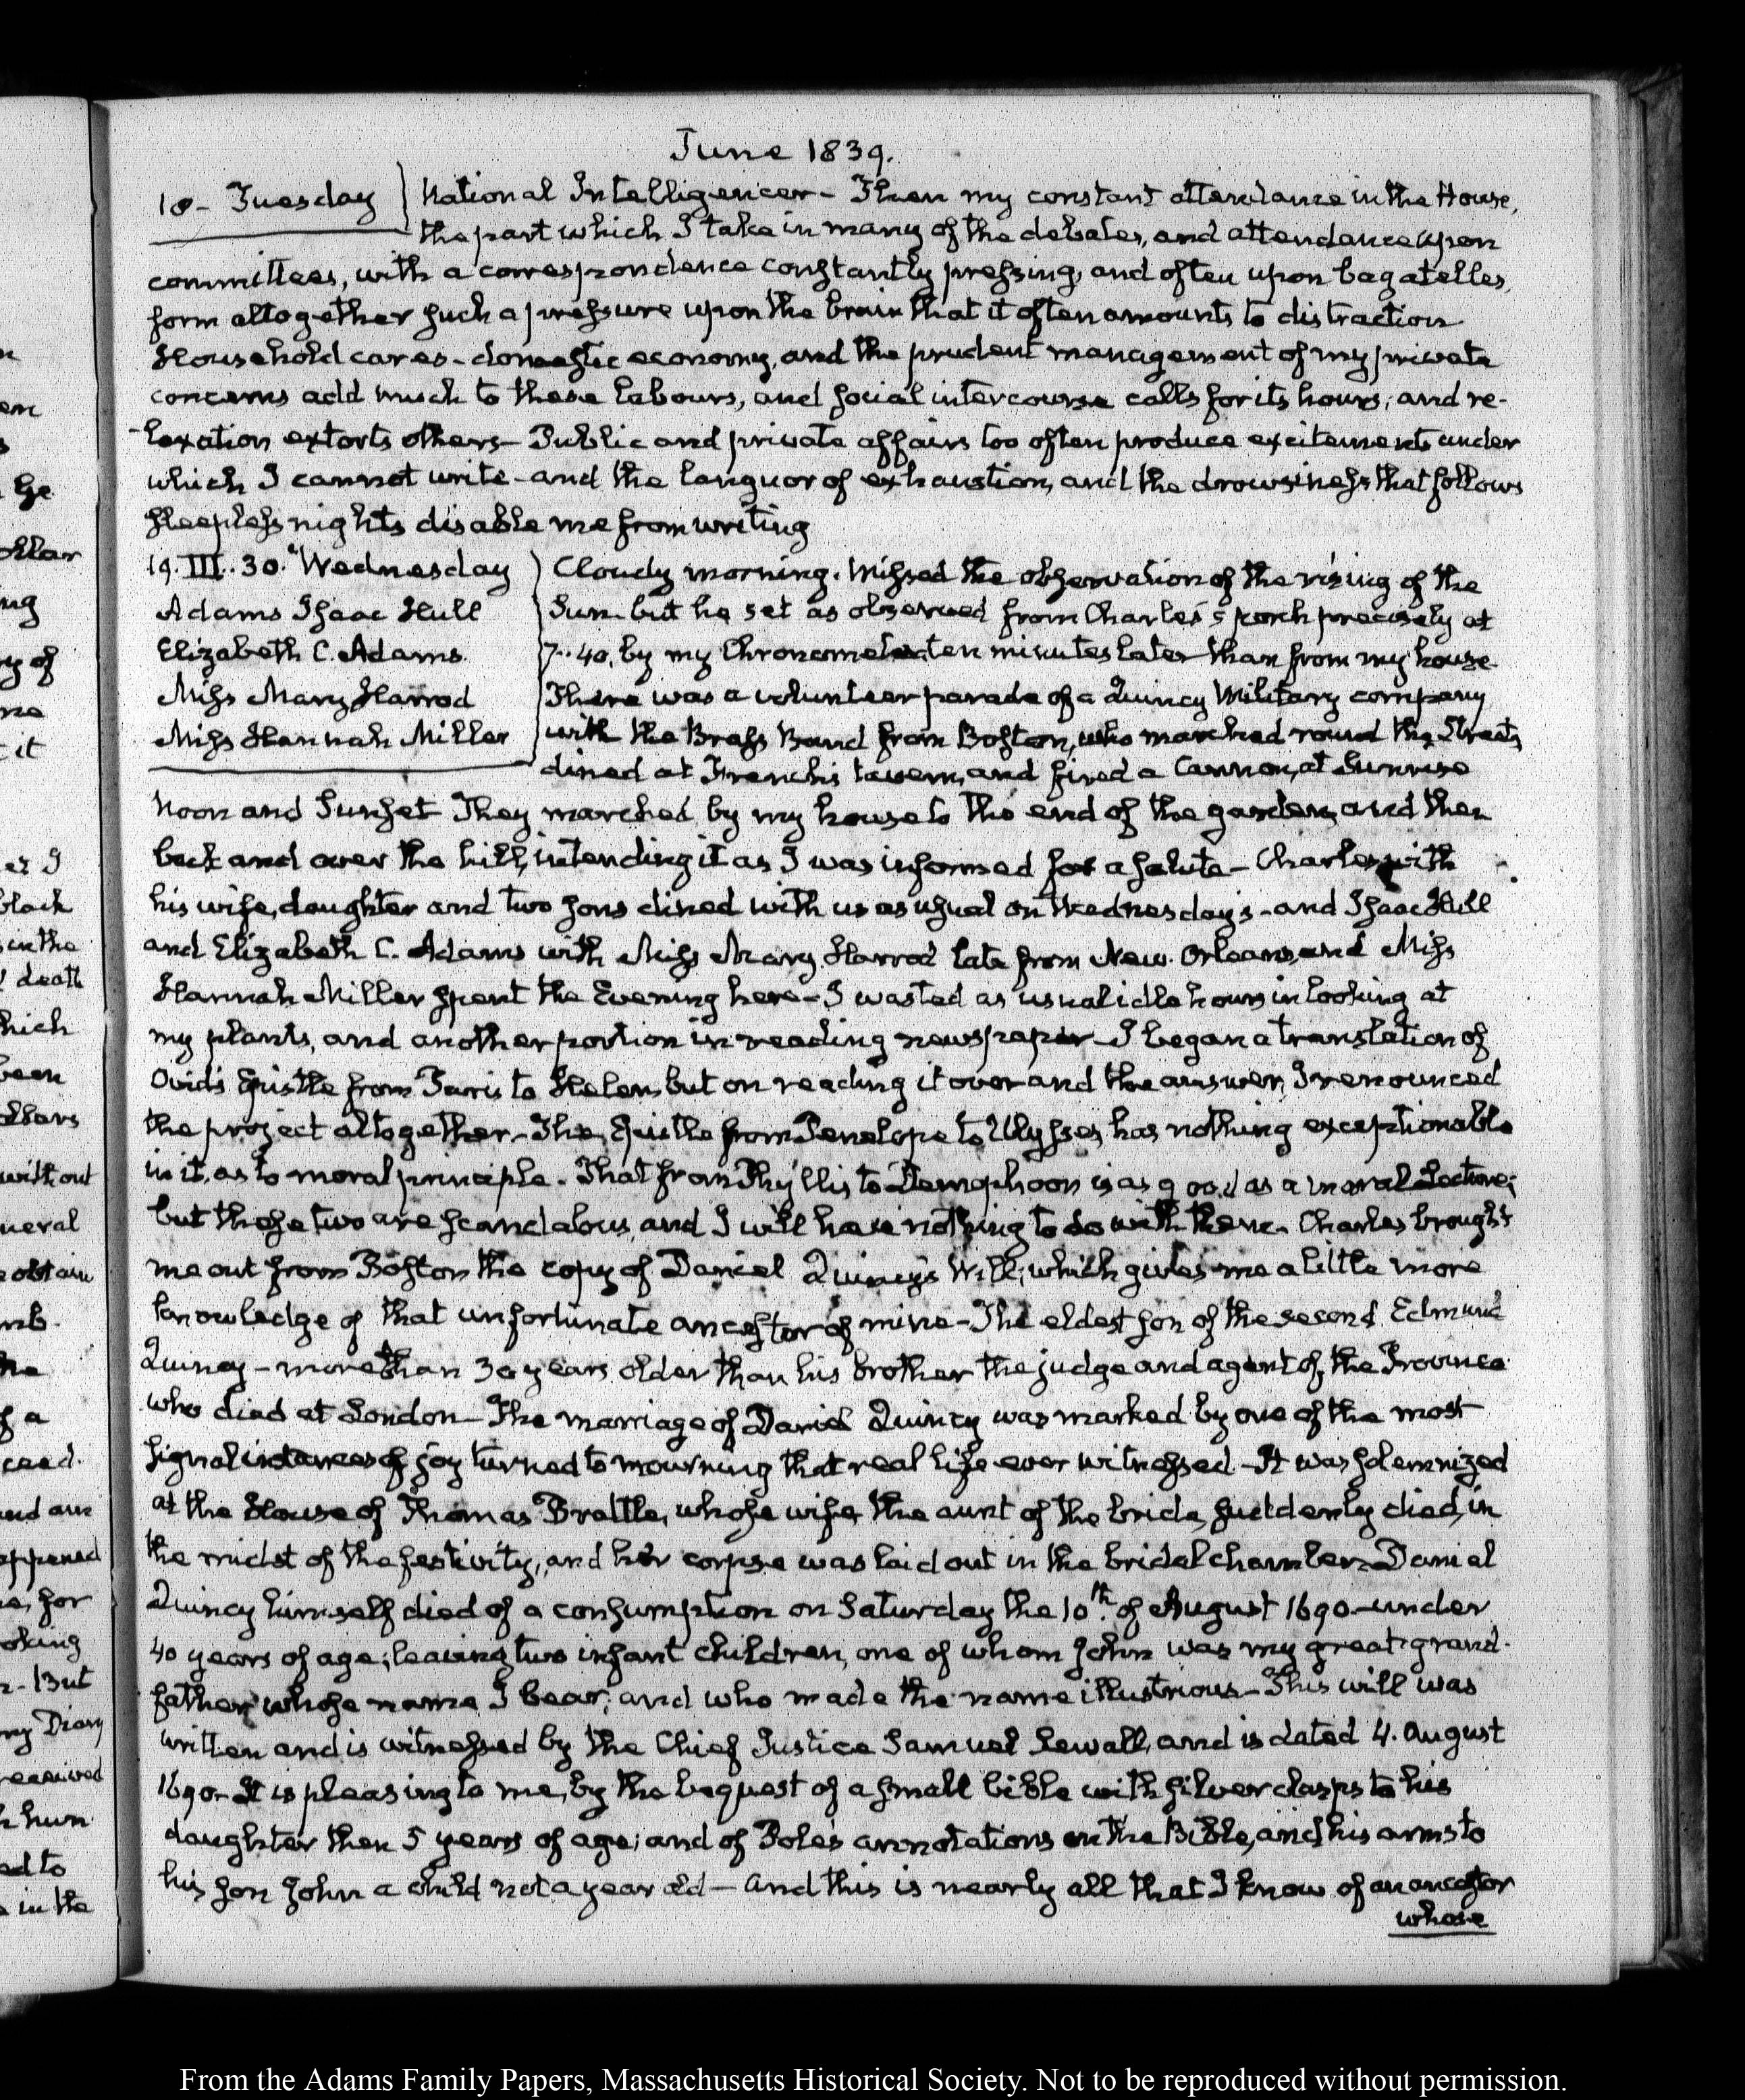 June 1839.
18- Tuesday
National Intelligencer- Then my constant attendance in the House,
the part which I take in many of the debates, and attendance upon
committees, with a correspondence constantly pressing, and often upon bagatelles,
form altogether such a pressure upon the brain that it often amounts to distraction
Household cares- domestic economy, and the prudent management of my private
concerns add much to these labours, and social intercourse calls for its hours; and re-
-laxation extorts others- Public and private affairs too often produce excitements under
which I cannot write- and the languor of exhaustion, and the drowsiness that follows
sleepless nights disable me from writing
19. III..30. Wednesday
Adams Isaac Hull
Elizabeth C. Adams.
Miss Mary Harrod
Miss Hannah Miller
Cloudy morning. Missed the observation of the rising of the
Sun- but he set as observed from Charles's porch precisely at
7..40. by my Chronometer ten minutes later than from my house-
There was a volunteer parade of a Quincy Military company
with the Brass Band from Boston, who marched round the Streets,
dined at French's tavern, and fired a Cannon, at Sunrise
Noon and Sunset- They marched by my house to the end of the garden, and then
back and over the hill, intending it as I was informed for a salute- Charles with
his wife, daughter and two sons dined with us as usual on Wednesdays- and Isaac Hull
and Elizabeth C. Adams with Miss Mary Harrod late from New Orleans, and Miss
Hannah Miller spent the Evening here- I wasted as usual idle hours in looking at
my plants, and another portion in reading newspapers- I began a translation of
Ovid's Epistle from Paris to Helen, but on reading it over and the answer, I renounced
the project altogether- The Epistle from Penelope to Ulysses, has nothing exceptionable
in it, as to moral principle. That from Phyllis to Demophoon is as good as a moral Lecture;
but these two are scandalous, and I will have nothing to do with them. Charles brought
me out from Boston the copy of Daniel Quincy's Will, which gives me a little more
knowledge of that unfortunate ancestor of mine- The eldest son of the second Edmund
Quincy- more than 30 years older than his brother the judge and agent of the Province
who died at London- The marriage of Daniel Quincy was marked by one of the most
signal instances of joy turned to mourning that real life ever witnessed- It was solemnized
at the House of Thomas Brattle, whose wife, the aunt of the bride, suddenly died, in
the midst of the festivity, and her corpse was laid out in the bridal chamber- Daniel
Quincy himself died of a consumption on Saturday the 10th. of August 1690.- under
40 years of age; leaving two infant children, one of whom John was my great grand-
father whose name I bear; and who made the name illustrious- This will was
written and is witnessed by the Chief Justice Samuel Sewall, and is dated 4. August
1690- It is pleasing to me, by the bequest of a small bible with silver clasps to his
daughter then 5 years of age; and of Pole's annotations on the Bible, and his arms to
his son John a child not a year old- And this is nearly all that I know of an ancestor
whose
From the Adams Family Papers, Massachusetts Historical Society. Not to be reproduced without permission.